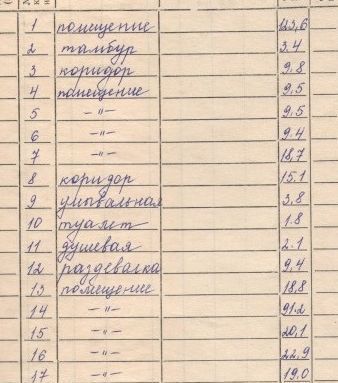 1 помещение 123,6
2 тамбур 3.4
3 коридор 9,8
4 помещение 9,5
5 -"- 9,5
6 -"- 9.4
7 -"- 18,7
8 коридор 15.1
9 умывальная 3,8
10 туалет 1.8
11 душевая 2.1
12 раздевалка 9,4
13 помещение 18,8
14 -"- 91.2
15 -"- 20,1
16 -"- 22,9
17 -"- 19.0